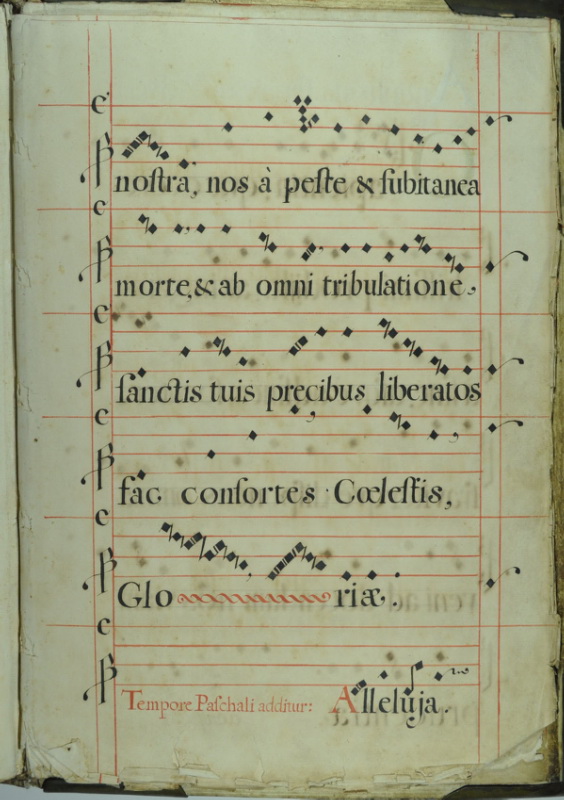 noſtra, nos à peſte & ſubitanea
morte, & ab omni tribulatione,
ſanctis tuis precibus liberatos
fac conſortes Cœleſtis,
Gloriæ.
Tempore Paſchali additur: Alleluja.